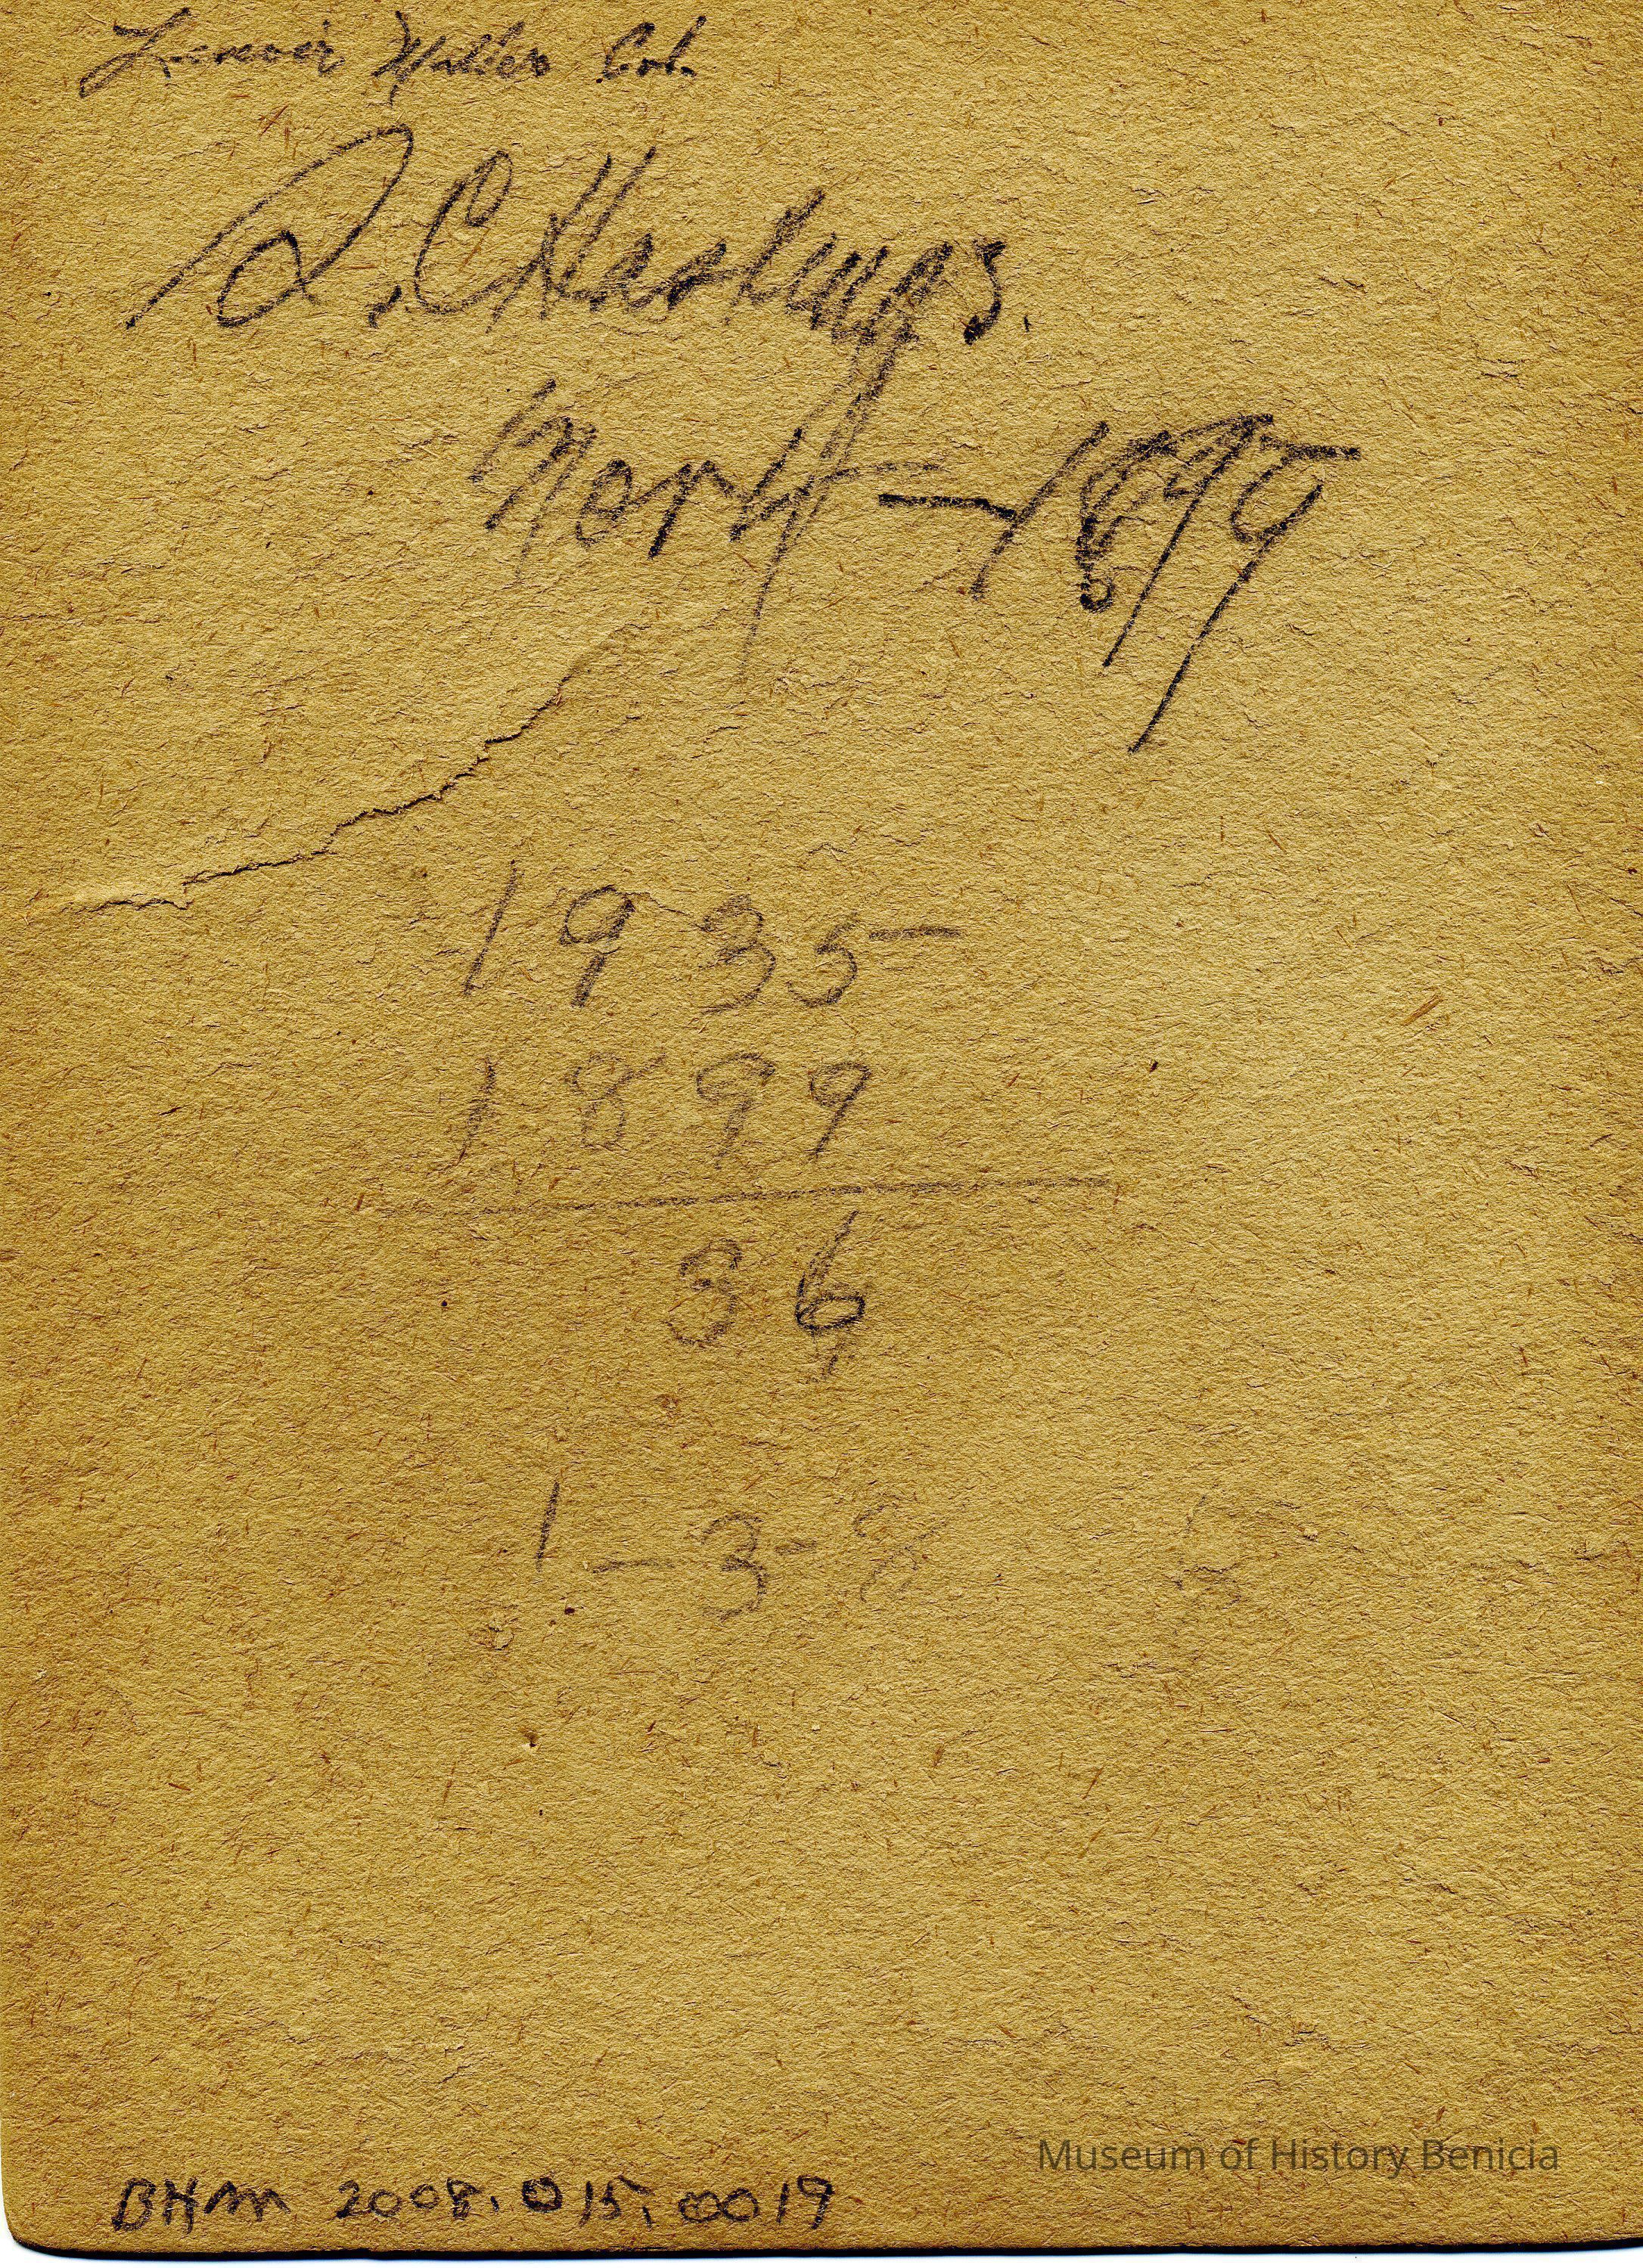 Lenoir Miller Col.
D. C Hastings.
Mort — 1899
1935
1899
36
1-3-8
Museum of History Benicia
BHM 2008.015.0019